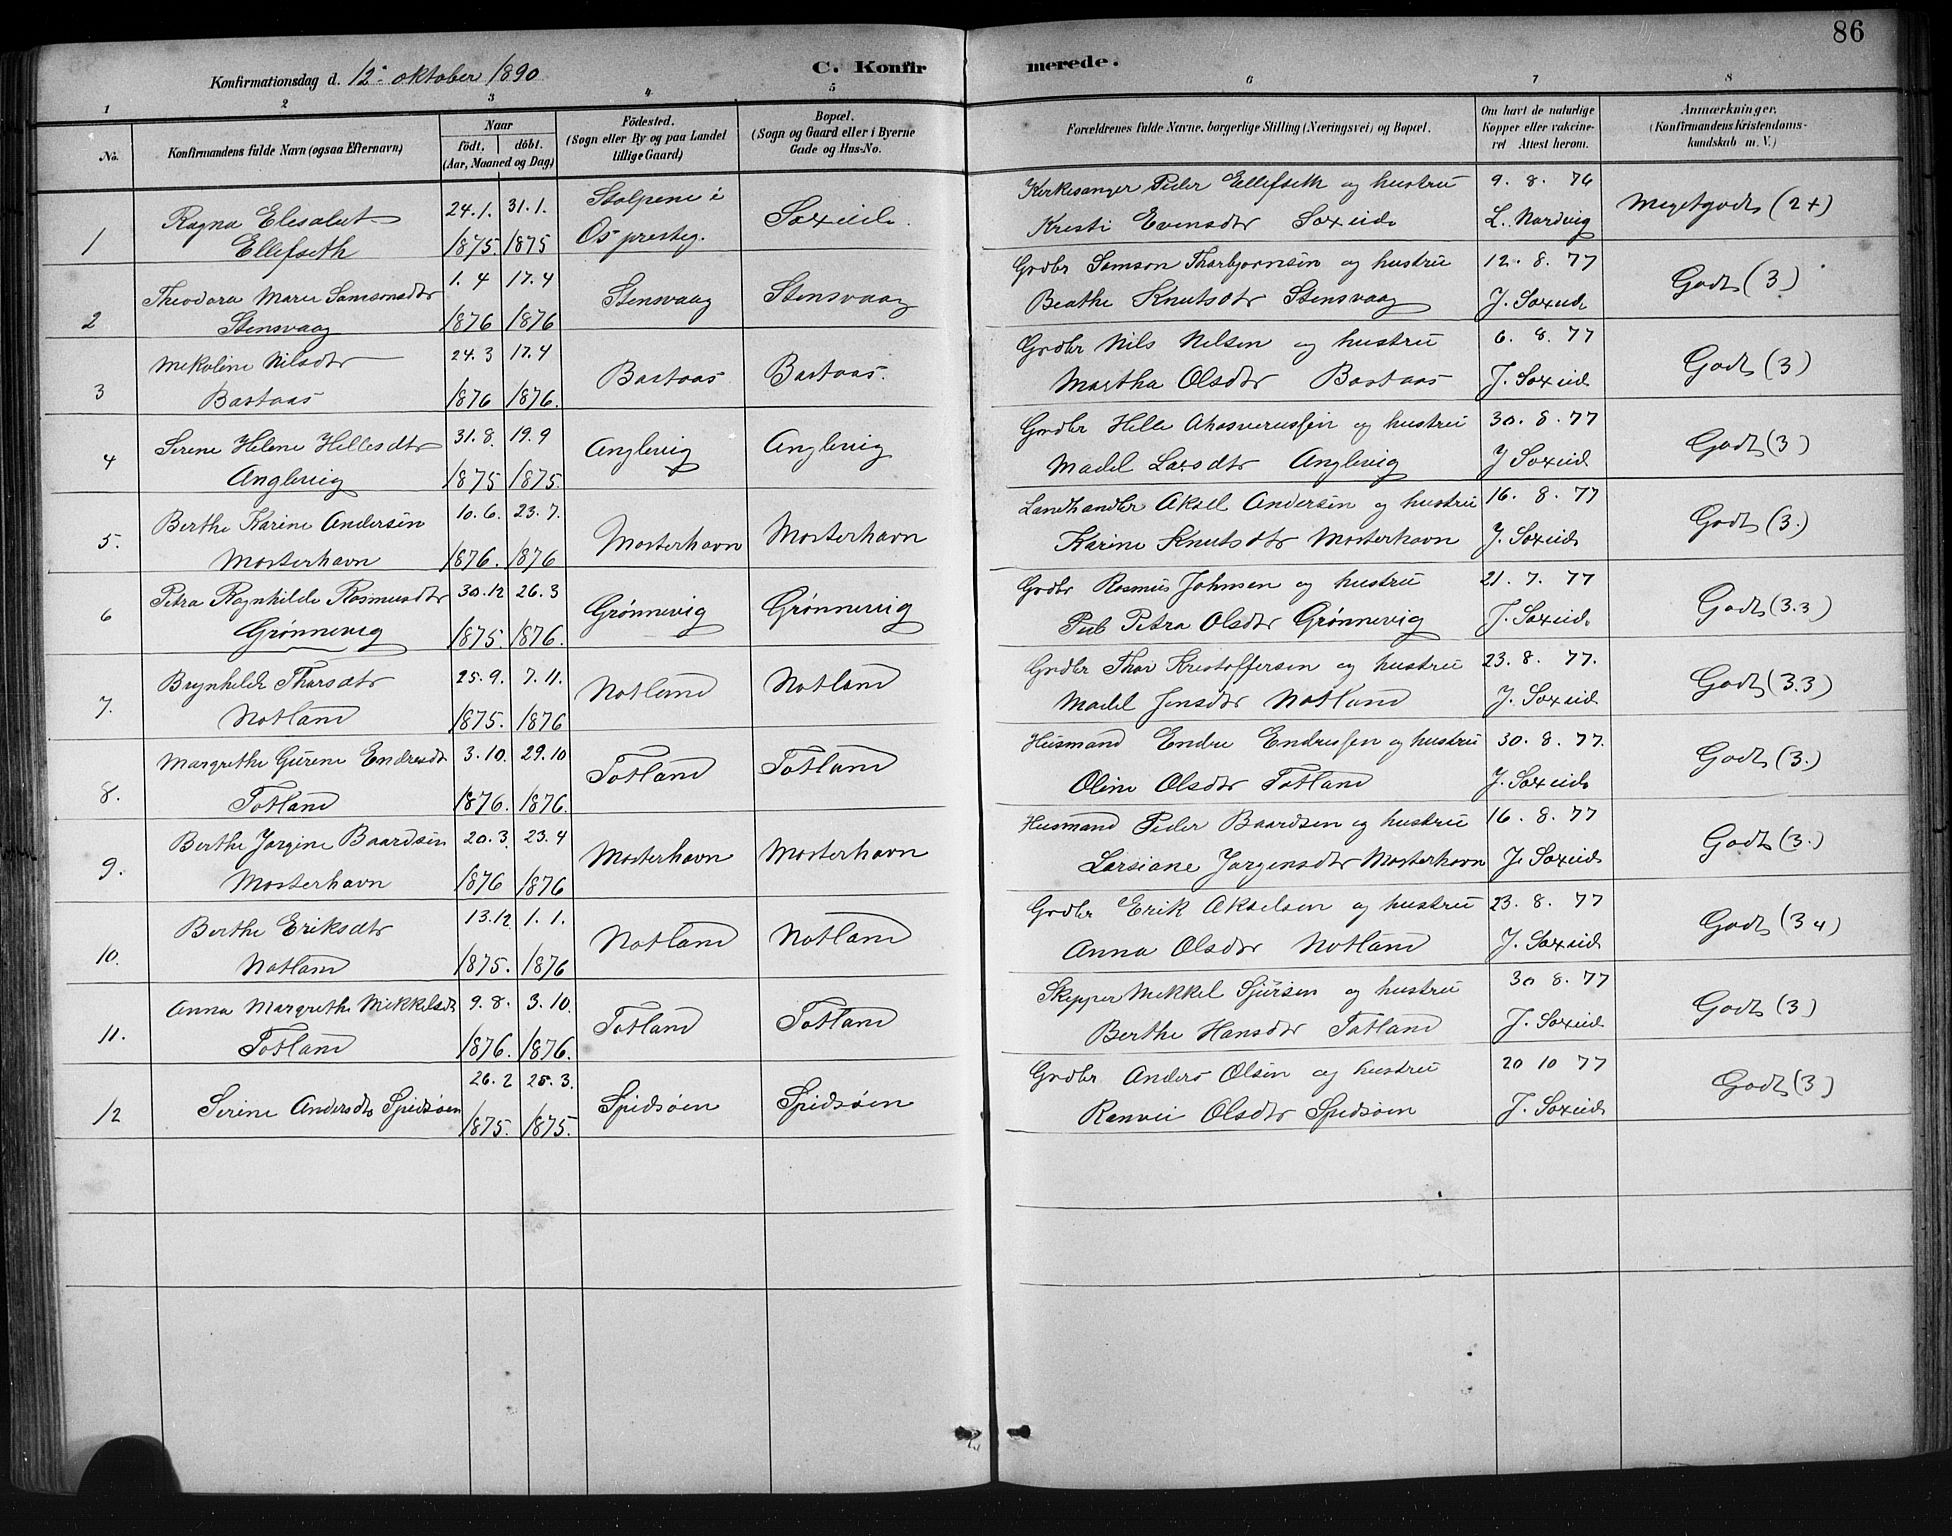 86
Konfirmationsdag d. 12. oktober 1890
C. Konfirmerede.
1 2 3 4 5 6 7 8
No.
Konfirmandens fulde Navn (ogsaa Efternavn)
Naar
födt, döbt.
(Aar, Maaned og Dag)
Födested.
(Sogn eller By og paa Landet
tillige Gaard)
Bopæl.
(Sogn og Gaard eller i Byerne
Gade og Hus-No.
Forældrenes fulde Navne, borgerlige Stilling (Næringsvei) og Bopæl.
Om havt de naturlige
Kopper eller vakcine-
ret Attest herom.
Anmærkninger.
(Konfirmandens Kristendoms-
kundskab m. V.)
Ragna Elesabet 24.1. 31.1. Stolpene i Soxeid. Kirkesanger Peder Ellefseth og hustru 9. 8. 76 Megetgodt (2+)
1 Ellefseth 1875. 1875 Os presteg. Kristi Evensdtr Soxeid L. Nordvig
Theodora Marie Samsonsdtr 1. 4 17.4 Stensvaag Stensvaag Grdbr Samson Thorbjørnsen og hustru 12. 8. 77 Godt (3)
2 Stensvaag 1876 1876 Beathe Knutsdtr Stensvaag J. Soxeid
Mekoline Nilsdtr 24.3 17.4 Bastaas Bastaas. Grdbr Nils Nilsen og hustru 6. 8. 77 Godt (3)
3 Bastaas 1876 1876. Martha Olsdtr Bastaas J. Soxeid
Serene Helene Hellesdtr 31.8. 19.9 Anglevig Anglevig Grdbr Helle Ahasverussen og hustru 30. 8. 77 Godt (3)
4 Anglevig 1875 1875. Madel Larsdtr Anglevig J Soxeid
Berthe Karine Andersen 10.6. 23.7. Mosterhavn Mosterhavn Landhandler Aksel Andersen og hustru 16. 8. 77 Godt (3.)
5. Mosterhavn 1876. 1876 Karine Knutsdtr Mosterhavn J. Soxeid
Petra Ragnhilde Rasmusdtr 30.12 26.3 Grønnevig Grønnevig Grdbr Rasmus Johnsen og hustru 21. 7. 77 Godt (3.3)
6 Grønnevig 1875. 1876. Petra Olsdtr Grønnevig J. Soxeid.
Brynhilde Thorsdtr 25.9. 7.11. Notland Notland Grdbr Thor Kristoffersen og hustru 23. 8. 77. Godt (3.3)
7. Notland 1875. 1876 Madel Jensdtr Notland J. Soxeid
Margrethe Gurene Endresdtr 3.10. 29.10 Totland Totland Husmand Endre Endressen og hustru 30. 8. 77. Godt (3.)
8. Totland 1876. 1876. Oline Olsdtr Totland J. Soxeid
Berthe Jørgine Baardsen 20.3. 23.4 Mosterhavn Mosterhavn Husmand Peder Baardsen og hustru 16. 8. 77 Godt (3.)
9. Mosterhavn 1876 1876 Larsiane Jørgensdtr Mosterhavn J. Soxeid
Berthe Eriksdtr 13.12 1. 1. Notland Notland Grdbr Erik Akselsen og hustru 23. 8. 77 Godt (34)
10. Notland 1875. 1876 Anna Olsdtr Notland J. Soxeid
Anna Margrethe Mekkelsdtr 9.8. 3.10. Totland Totland Skipper Mekkel Sjursen og hustru 30 8. 77 Godt (3)
11. Totland 1876. 1876. Berthe Hansdtr Totland J. Soxeid
Serine Andersdtr Spidsøen 26.2 25.3. Spidsøen Spidsøen Grdbr Anders Olsen og hustru 20 10 77 Godt (3)
12 1875. 1875. Ranvei Olsdtr Spidsøen J. Soxeid